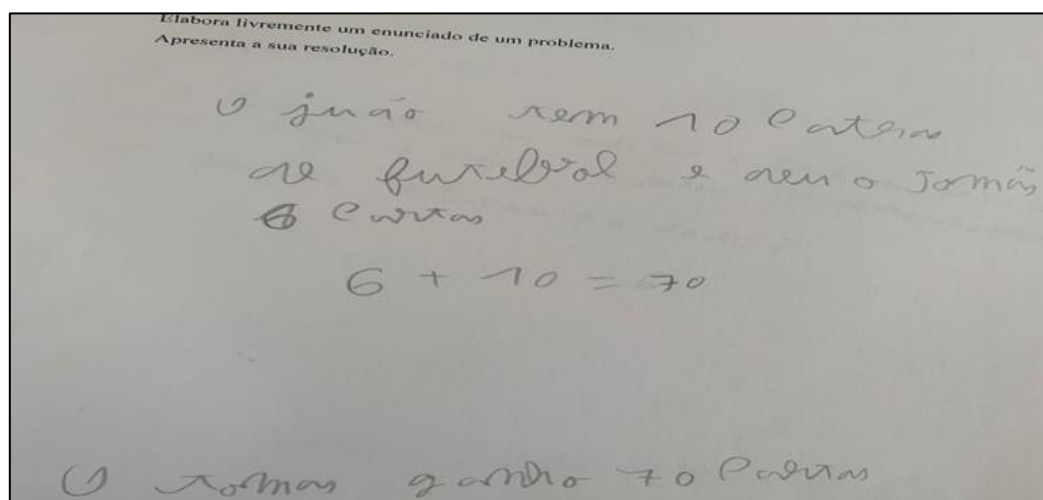 Elabora livremente um enunciado de um problema.
Apresenta a sua resolução.
O juão tem 10 Cartas
de futebol e deu o Tomás
6 Cartas
6 + 10 = 70
O tomas ganho 70 Cartas